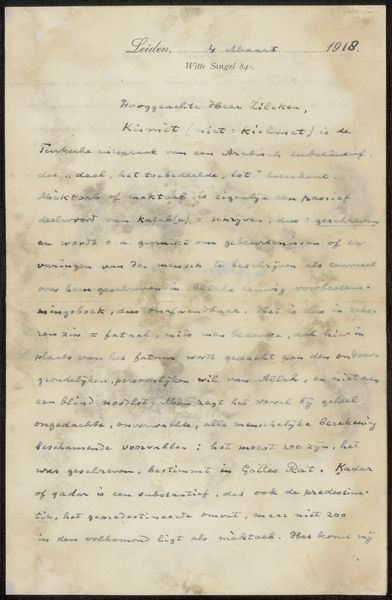 Leiden, 4 Maart 1918.
Witte Singel 84a.
Hooggeachte Heer Zilcken,
Kismèt (niet: Kishmet) is de
Turksche uitspraak van een Arabisch substantief,
dat „deel, het toebedeelde, lot" beteekent.
Mèktoeb of maktoeb is eigenlijk een passief
deelwoord van katab(a) = schrijven, dus: geschreven
en wordt o.a. gebruikt om gebeurtenissen of er-
varingen van den mensch te beschrijven als eenmaal
over hem geschreven in Allahs eeuwig voorbestem-
mingsboek, dus onafwendbaar. Het is dus in zeke-
ren zin = fataal, mits men bedenke, dat hier in
plaats van het fatum wordt gedacht aan den ondoor-
grondelijken, persoonlijken wil van Allah, en niet aan
een blind noodlot. Men zegt het vooral bij geheel
ongedachte, onverwachte, alle menschelijke berekening
beschamende voorvallen: het moest zoo zijn, het
was geschreven, bestimmt in Gottes Rat. Kadar
of qadar is een substantief, dat ook de predestina-
tie, het gepredestineerde omvat, maar niet zoo
in den volksmond ligt als mèktoeb. Het komt mij